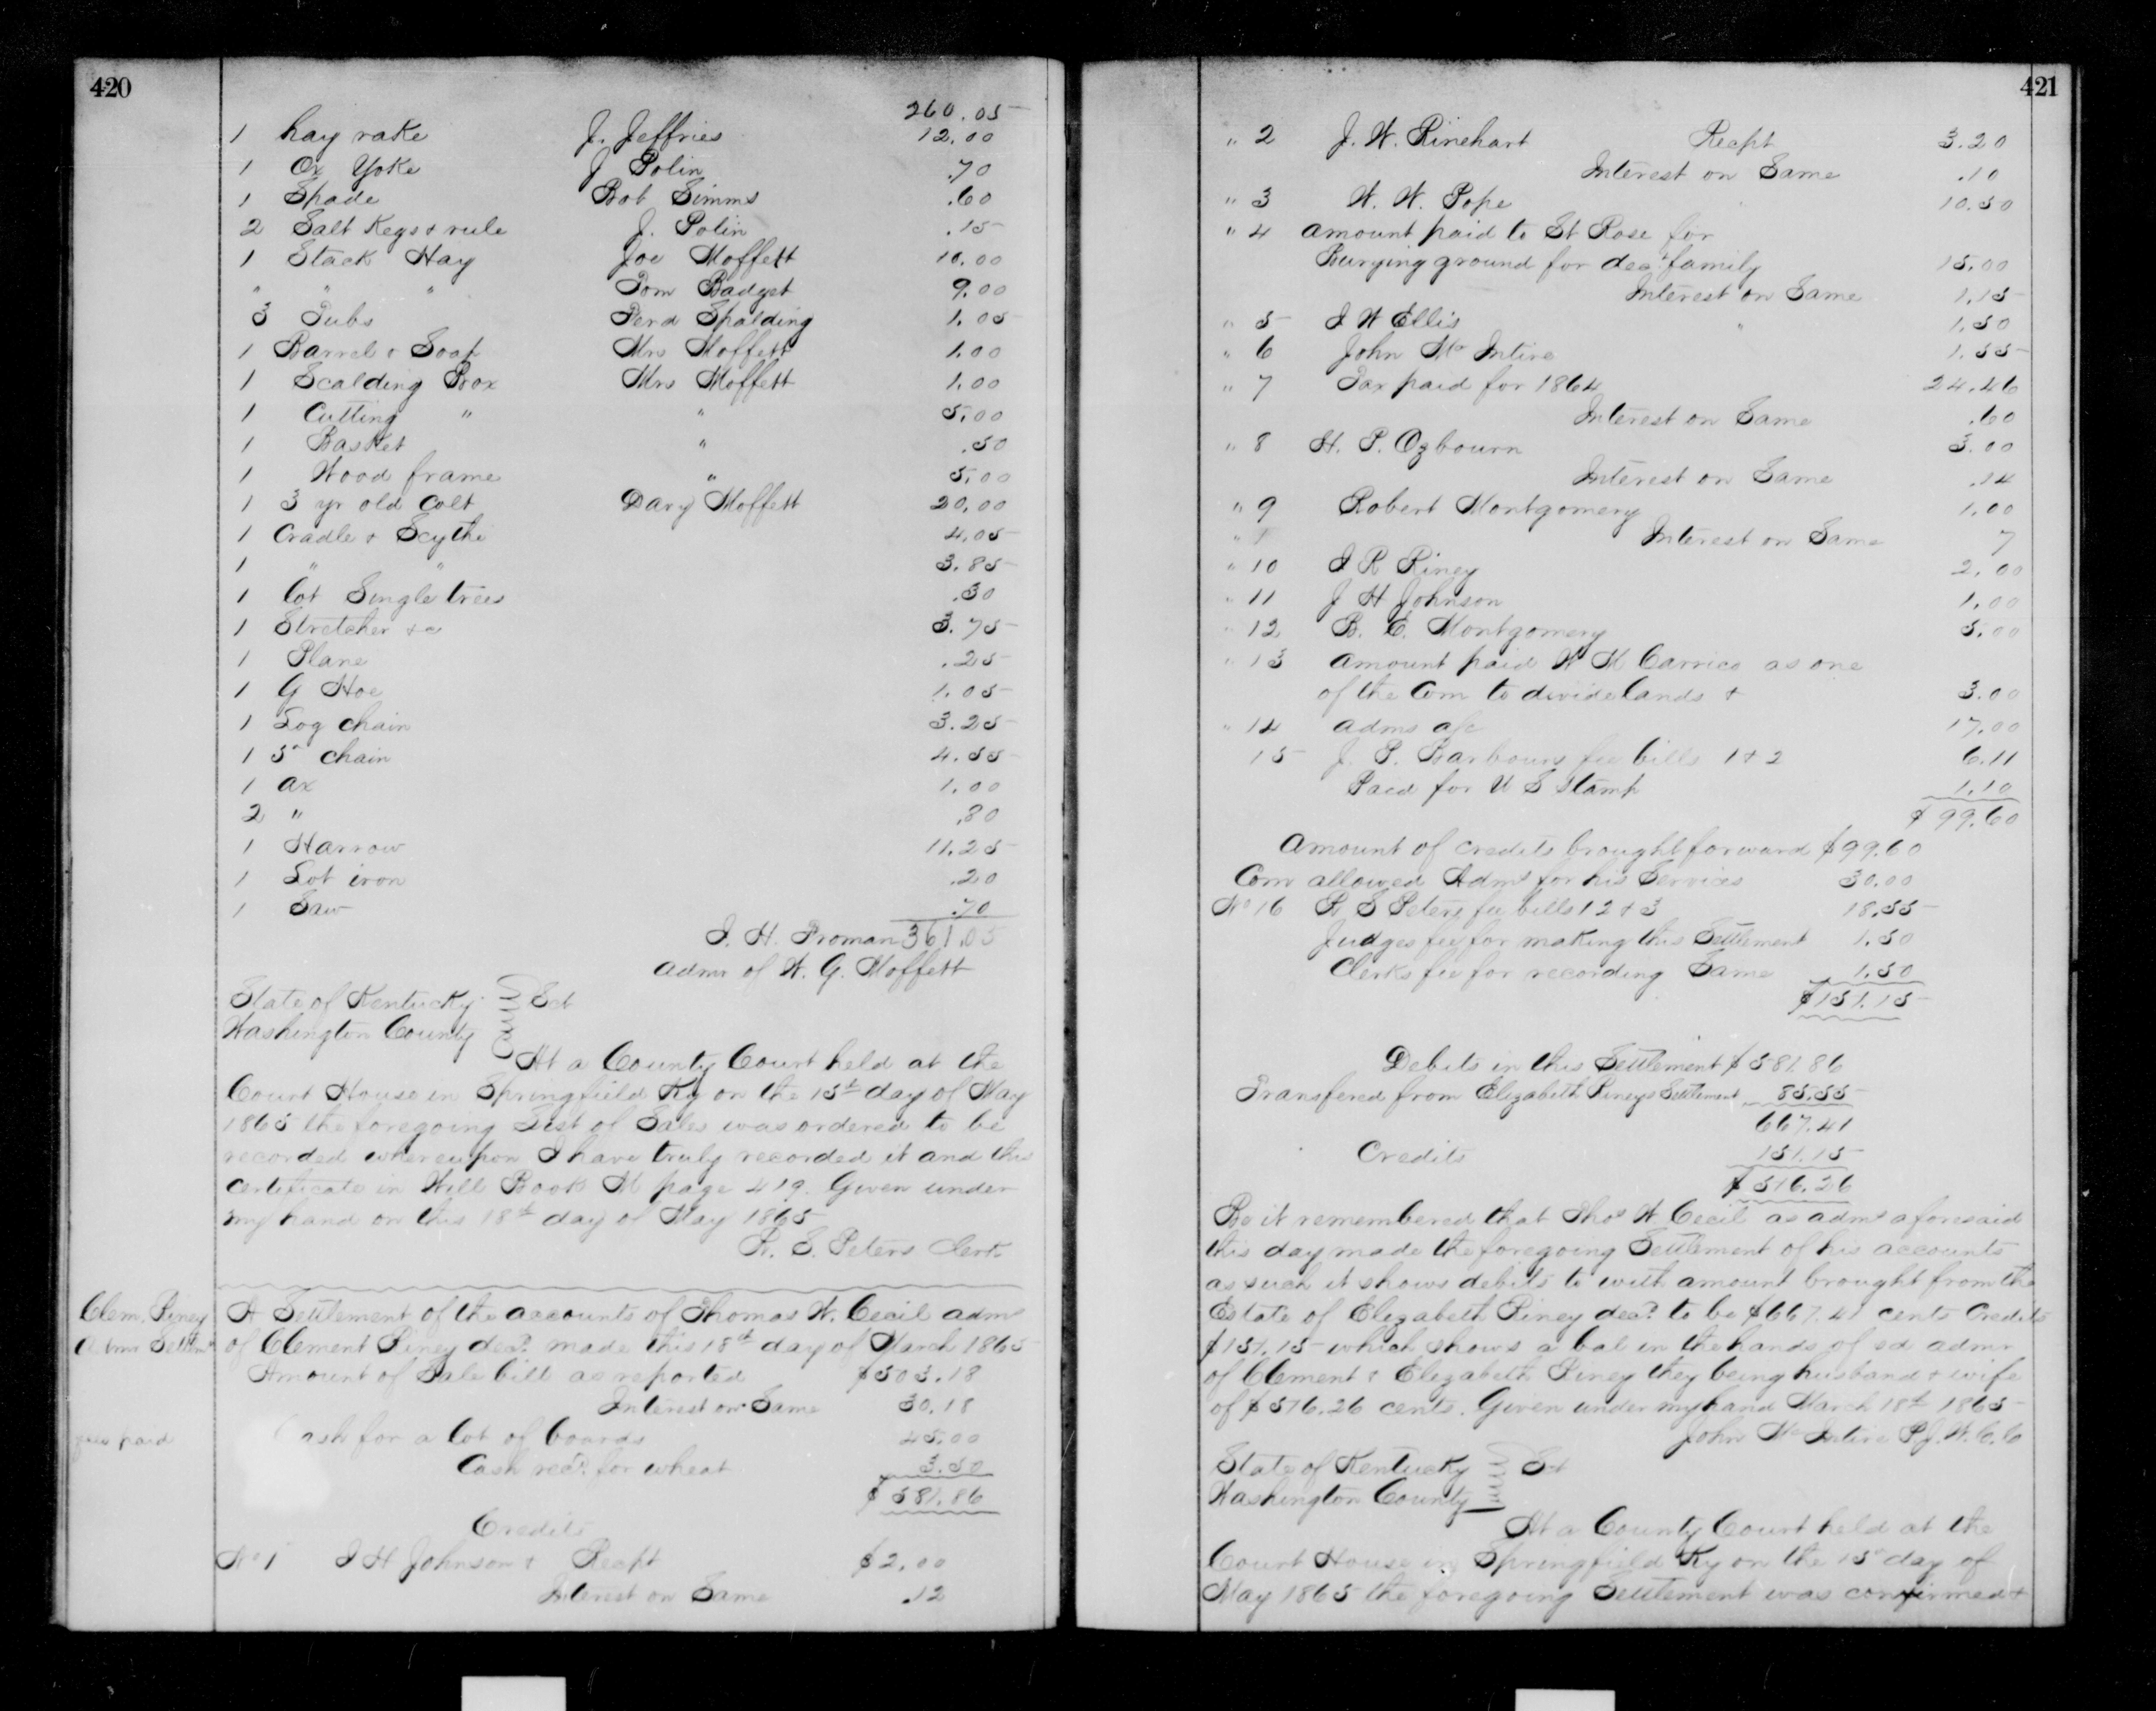 420
260.05
1 hay rake J. Jeffries 12.00
1 Ox Yoke J Polin .70
1 Spade Bob Simms .60
2 Salt Kegs & rule J. Polin .15
1 Stack Hay Joe Moffett 10.00
" " " Tom Badget 9.00
3 Tubs Perd Spalding 1.05
1 Barrel & Soap Mrs Moffett 1.00
1 Scalding Box Mrs Moffett 1.00
1 Cutting " " 5.00
1 Basket " .50
1 Wood frame " 5.00
1 3 yr old Colt Davy Moffett 20.00
1 Cradle & Scythe 4.05
1 " " 3.85
1 lot Single trees .30
1 Stretcher &c 3.75
1 Plane .25
1 G Hoe 1.05
1 Log chain 3.25
1 5th chain 4.55
1 ax 1.00
2 " .80
1 Harrow 11.25
1 Lot iron .20
1 Saw .70
J. H. Froman 361.05
Admr of W. G. Moffett
State of Kentucky Sct
Washington County
At a County Court held at the
Court House in Springfield Ky on the 15th day of May
1865 the foregoing List of Sales was ordered to be
recorded whereupon I have truly recorded it and this
certificate in Will Book M page 419. Given under
my hand on this 18th day of May 1865
R. S. Peters Clerk
Clem. Riney
Admr Settlmt
A Settlement of the accounts of Thomas W. Cecil admr
of Clement Riney decd. made this 18th day of March 1865
Amount of Sale bill as reported $503.18
Interest on Same 30.18
fees paid
Cash for a lot of boards 45.00
Cash recd. for wheat 3.50
$581.86
Credits
No 1 J H Johnson & Recpt $2.00
Interest on Same .12
421
" 2 J. W. Rinehart Recpt 3.20
Interest on Same .10
" 3 W. W. Pope " 10.50
" 4 amount paid to St Rose for
Burying ground for decd family 15.00
Interest on Same 1.15
" 5 J W Ellis " 1.50
" 6 John Mc Intire 1.55
" 7 Tax paid for 1864 24.46
Interest on Same .60
" 8 H. P. Ozbourn 3.00
Interest on Same .14
" 9 Robert Montgomery 1.00
Interest on Same 7
" 10 J R Riney 2.00
" 11 J H Johnson 1.00
" 12 B. E. Montgomery 5.00
" 13 amount paid W M Carrico as one
of the Com to divide lands & 3.00
" 14 adms a/c 17.00
15 J. P. Barbours fee bills 1 & 2 6.11
Paid for U S Stamp 1.10
$99.60
Amount of credits brought forward $99.60
Com allowed Admr for his Services 30.00
No 16 R S Peters fee bills 1 2 & 3 18.55
Judges fee for making this Settlement 1.50
Clerks fee for recording Same 1.50
$151.15
Debits in this Settlement $581.86
Transfered from Elizabeth Rineys Settlement 85.55
667.41
Credits 151.15
$516.26
Be it remembered that Thos W Cecil as admr aforesaid
this day made the foregoing Settlement of his accounts
as such it shows debits to with amount brought from the
Estate of Elizabeth Riney decd. to be $667.41 cents Credits
$151.15 which shows a bal in the hands of sd admr
of Clement & Elizabeth Riney they being husband & wife
of $516.26 cents. Given under my hand March 18th 1865
John Mc Intire P.J.W.C.C
State of Kentucky Sct
Washington County
At a County Court held at the
Court House in Springfield Ky on the 15th day of
May 1865 the foregoing Settlement was confirmed &